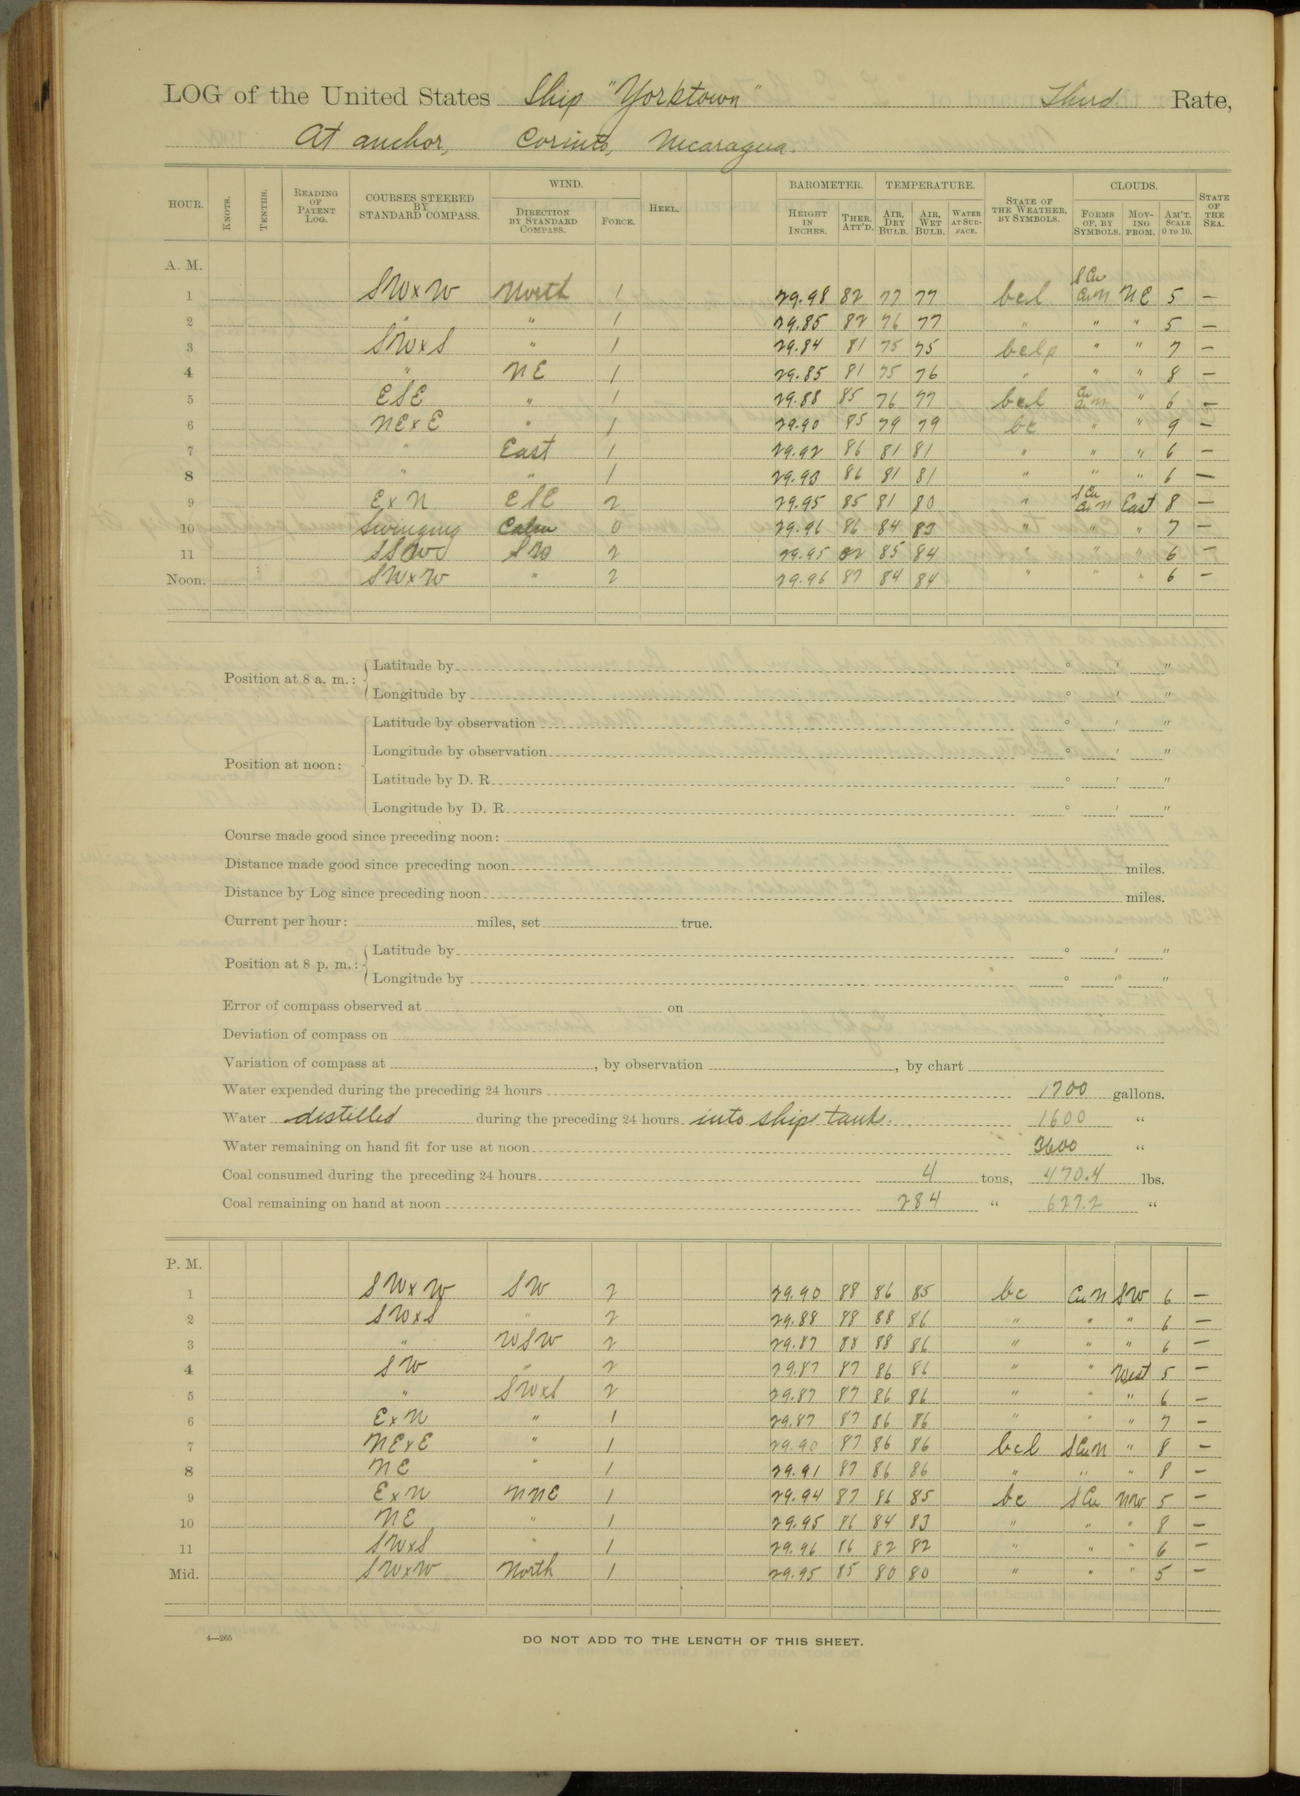 LOG of the United States Ship "Yorktown" Third Rate,
At anchor, Corinto, Nicaragua.
HOUR. KNOTS. TENTHS. READING OF PATENT LOG. COURSES STEERED BY STANDARD COMPASS. WIND. DIRECTION BY STANDARD COMPASS. FORCE. HEEL. BAROMETER. HEIGHT IN INCHES. THER. ATT'D. TEMPERATURE. AIR, DRY BULB. AIR, WET BULB. WATER AT SURFACE. STATE OF THE WEATHER, BY SYMBOLS. CLOUDS. FORMS OF, BY SYMBOLS. MOVING FROM. AM'T. SCALE 0 TO 10. STATE OF THE SEA.
A. M.
1 SWxW North 1 29.98 82 77 77 bcl S Cu Cu N NE 5 —
2 " " 1 29.85 82 76 77 " " " 5 —
3 SWxS " 1 29.84 81 75 75 bclp " " 7 —
4 " NE 1 29.85 81 75 76 " " " 8 —
5 ESE " 1 29.88 85 76 77 bcl Cu Cu N " 6 —
6 NExE " 1 29.90 85 79 79 bc " " 9 —
7 " East 1 29.92 86 81 81 " " " 6 —
8 " " 1 29.93 86 81 81 " " " 6 —
9 ExN ESE 2 29.95 85 81 80 " S Cu Cu N East 8 —
10 Swinging Calm 0 29.96 86 84 83 " " " 7 —
11 SSW SW 2 29.95 85 84 " " " 6 —
Noon. SWxW " 2 29.96 87 84 84 " " " 6 —
Position at 8 a. m.: Latitude by ° ' "
Longitude by ° ' "
Position at noon: Latitude by observation ° ' "
Longitude by observation ° ' "
Latitude by D. R. ° ' "
Longitude by D. R. ° ' "
Course made good since preceding noon:
Distance made good since preceding noon miles.
Distance by Log since preceding noon miles.
Current per hour: miles, set true.
Position at 8 p. m.: Latitude by ° ' "
Longitude by ° ' "
Error of compass observed at on
Deviation of compass on
Variation of compass at , by observation , by chart
Water expended during the preceding 24 hours 1700 gallons.
Water distilled during the preceding 24 hours into ships tanks. 1600 "
Water remaining on hand fit for use at noon 3600 "
Coal consumed during the preceding 24 hours 4 tons, 470.4 lbs.
Coal remaining on hand at noon 284 " 627.2 "
P. M.
1 SWxW SW 2 29.90 88 86 85 bc Cu N SW 6 —
2 SWxS " 2 29.88 88 88 86 " " " 6 —
3 " WSW 2 29.87 88 88 86 " " " 6 —
4 SW " 2 29.87 87 86 86 " " West 5 —
5 " SWxS 2 29.87 87 86 86 " " " 6 —
6 ExN " 1 29.87 87 86 86 " " " 7 —
7 NExE " 1 29.90 87 86 86 bcl S Cu N " 8 —
8 NE " 1 29.91 87 86 86 " " " 8 —
9 ExN NNE 1 29.94 87 86 85 bc S Cu NW 5 —
10 NE " 1 29.95 86 84 83 " " " 8 —
11 SWxS " 1 29.96 86 82 82 " " " 6 —
Mid. SWxW North 1 29.95 85 80 80 " " " 5 —
4—265
DO NOT ADD TO THE LENGTH OF THIS SHEET.